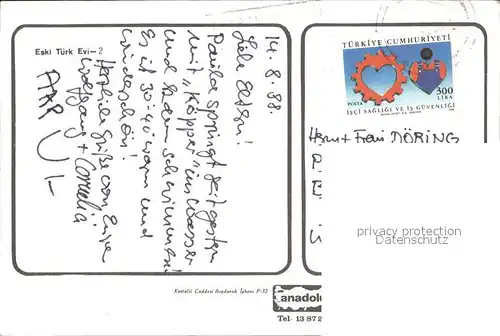 Eski Türk Evi-2
14.8.88.
Liebe Eltern!
Paula springt seit gestern
mit "Köpper" ins Wasser
und kann schwimmen!
Es ist 30-40 warm und
wunderschön!
Herzliche Grüße von Euren
Wolfgang + Cornelia
TÜRKİYE CUMHURİYETİ
300
LİRA
POSTA
İŞÇİ SAĞLIĞI VE İŞ GÜVENLİĞİ
Herrn + Frau DÖRING
privacy protection
datenschutz
Kestelli Caddesi Başdurak İşhanı P-32
anadolu
Tel: 13 87 2